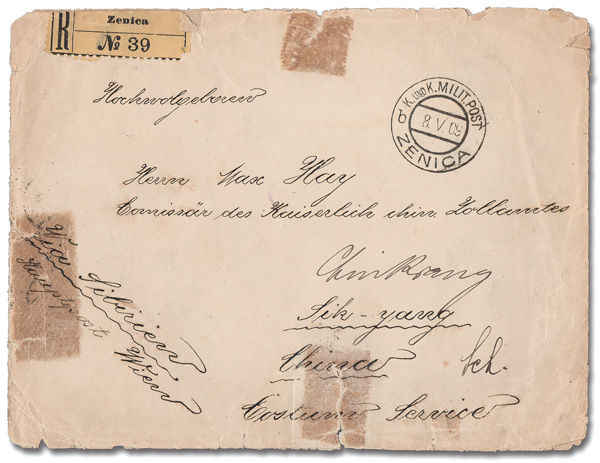 R
Zenica
№ 39
Hochwolgeboren
b K. UND K. MILIT. POST
8. V. 09
ZENICA
Herrn Max Hay
Comissär des Kaiserlich chin. Zollamtes
Chinkiang
Sik-yang
China
Costum Service
Via Sibirien
Wien